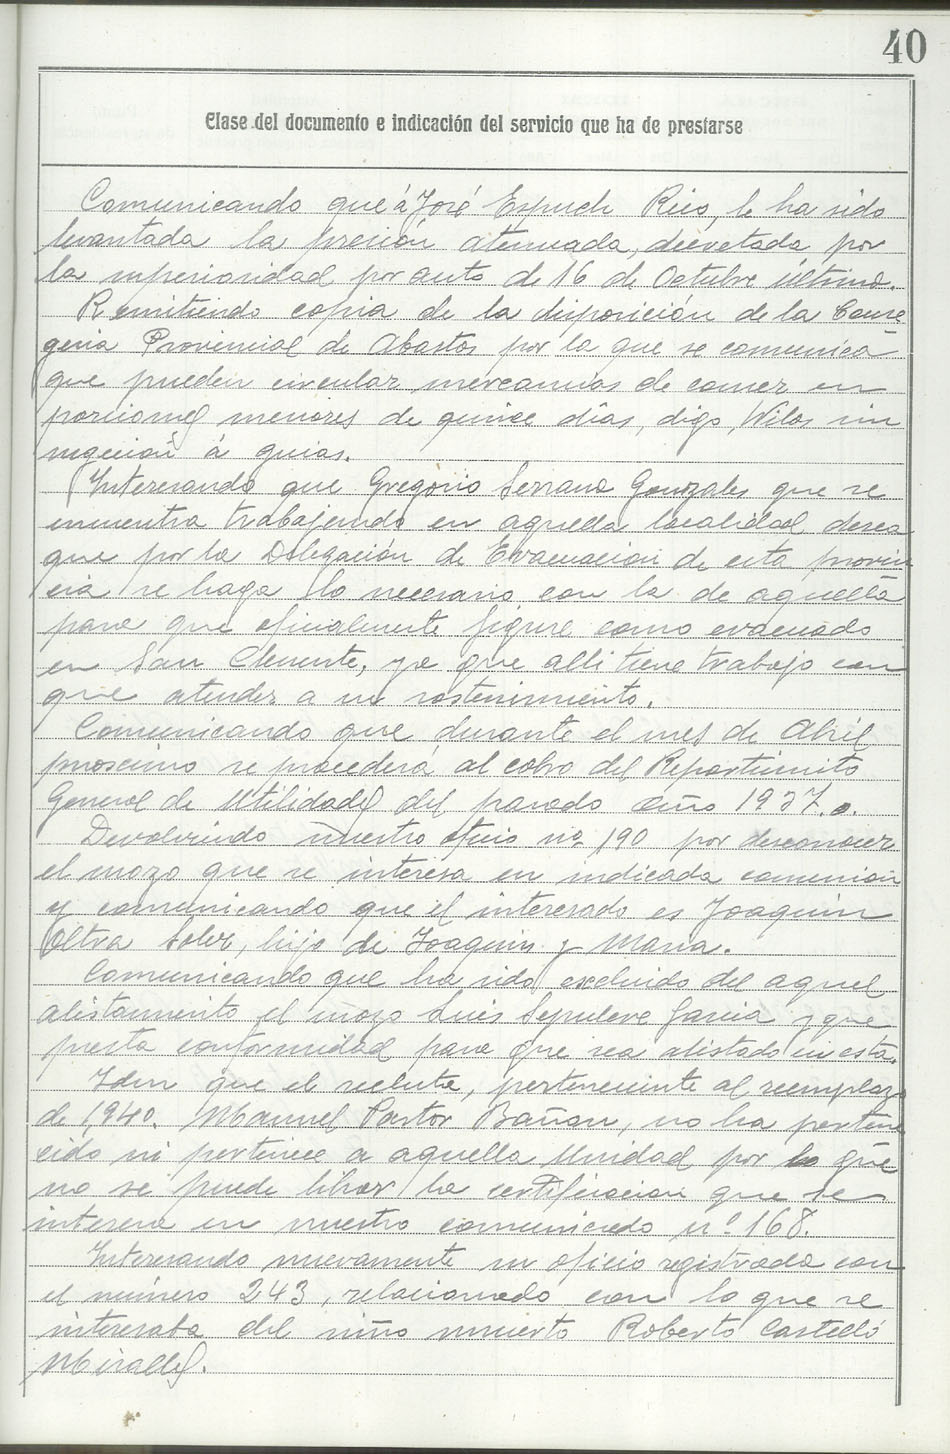 40
Clase del documento e indicación del servicio que ha de prestarse
Comunicando que á José Espuch Rico, le ha sido
levantada la presión atenuada, decretada por
la superioridad por auto de 16 de Octubre último.
Remitiendo copia de la disposición de la Conse
geria Provincial de Abastos por la que se comunica
que pueden circular mercancias de comer en
porciones menores de quince dias, digo, Kilos sin
sugecion á guias.
Interesando que Gregorio Serrano Gonzales que se
encuentra trabajando en aquella localidad, desea
que por la Delegación de Evacuacion de esta provin
cia se haga lo necesario con la de aquella
para que oficialmente figure como evacuado
en San Clemente, ya que alli tiene trabajo con
que atender a su sostenimiento.
Comunicando que durante el mes de Abril
proximo se procederá al cobro del Repartimiento
General de Utilidades del pasado año 1937.
Devolviendo nuestro oficio nº 190 por desconocer
el mozo que se interesa en indicada comunion
y comunicando que el interesado es Joaquin
Oltra Soler, hijo de Joaquin y Maria.
Comunicando que ha sido excluido del aquel
alistamiento el mozo Luis Sepulcre Garcia y que
presta conformidad para que sea alistado en esta.
Idem que el recluta, perteneciente al reemplazo
de 1,940. Manuel Pastor Bañon, no ha pertene
cido ni pertenece a aquella Unidad por lo que
no se puede librar la certificacion que se
interesa en nuestro comunicado nº 168.
Interesando nuevamente su oficio registrado con
el número 243, relacionado con lo que se
interesaba del niño muerto Roberto Castelló
Miralles.